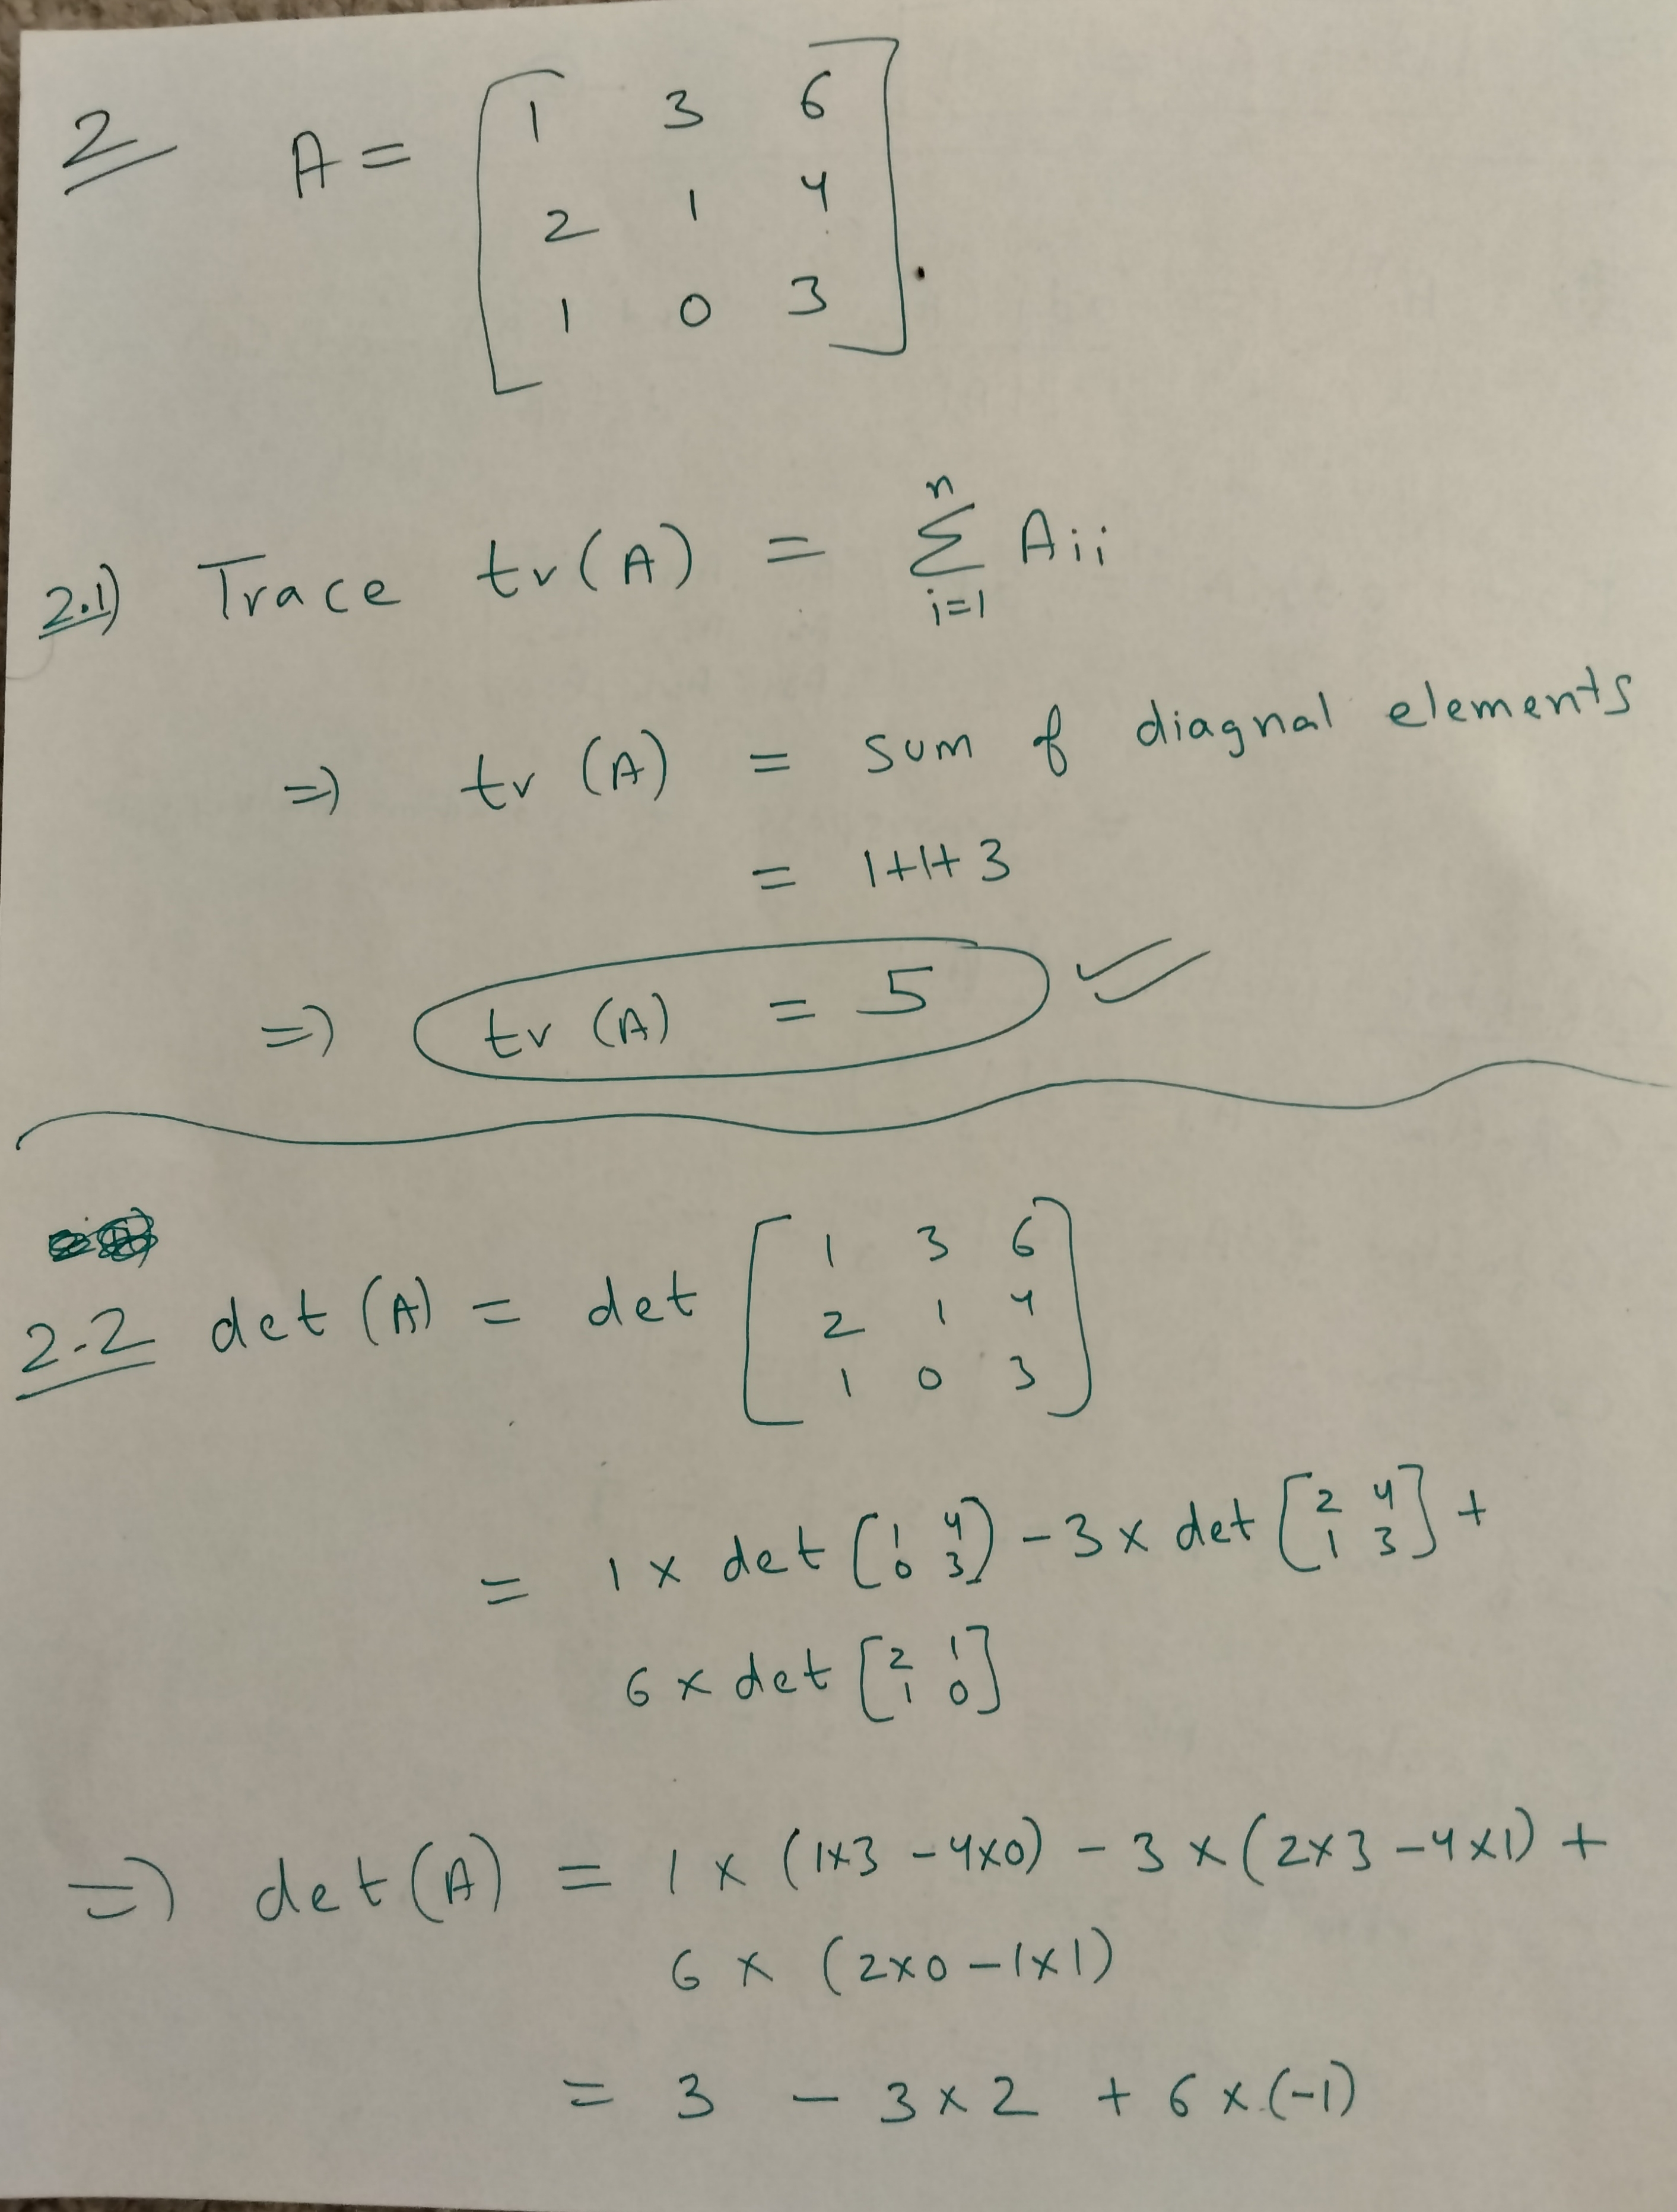 2 A = [ 1 3 6
2 1 4
1 0 3 ].
2.1) Trace tr(A) = n∑i=1 Aii
=) tr (A) = sum of diagnal elements
= 1+1+3
=) tr (A) = 5
2.2 det (A) = det [ 1 3 6
2 1 4
1 0 3 ]
= 1 x det [ 1 4 0 3 ] - 3 x det [ 2 4 1 3 ] +
6 x det [ 2 1 1 0 ]
=) det (A) = 1 x (1x3 - 4x0) - 3 x (2x3 - 4x1) +
6 x (2x0 - 1x1)
= 3 - 3x2 + 6x(-1)